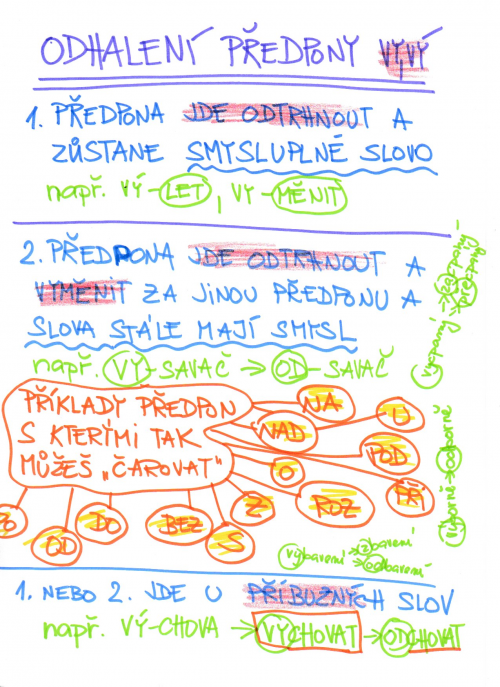 ODHALENÍ PŘEDPONY VY,VÝ
1. PŘEDPONA JDE ODTRHNOUT A
ZŮSTANE SMYSLUPLNÉ SLOVO
např. VÝ-LET, VY-MĚNIT
2. PŘEDPONA JDE ODTRHNOUT A
VYMĚNIT ZA JINOU PŘEDPONU A
SLOVA STÁLE MAJÍ SMYSL
např. VY-SAVAČ → OD-SAVAČ
PŘÍKLADY PŘEDPON
S KTERÝMI TAK
MŮŽEŠ „ČAROVAT"
NA
U
NAD
POD
O
PŘI
ROZ
Z
S
BEZ
DO
OD
vybavení → zbavení
→ odbavení
výborně → odborně
1. NEBO 2. JDE U PŘÍBUZNÝCH SLOV
např. VÝ-CHOVA → VYCHOVAT → ODCHOVAT